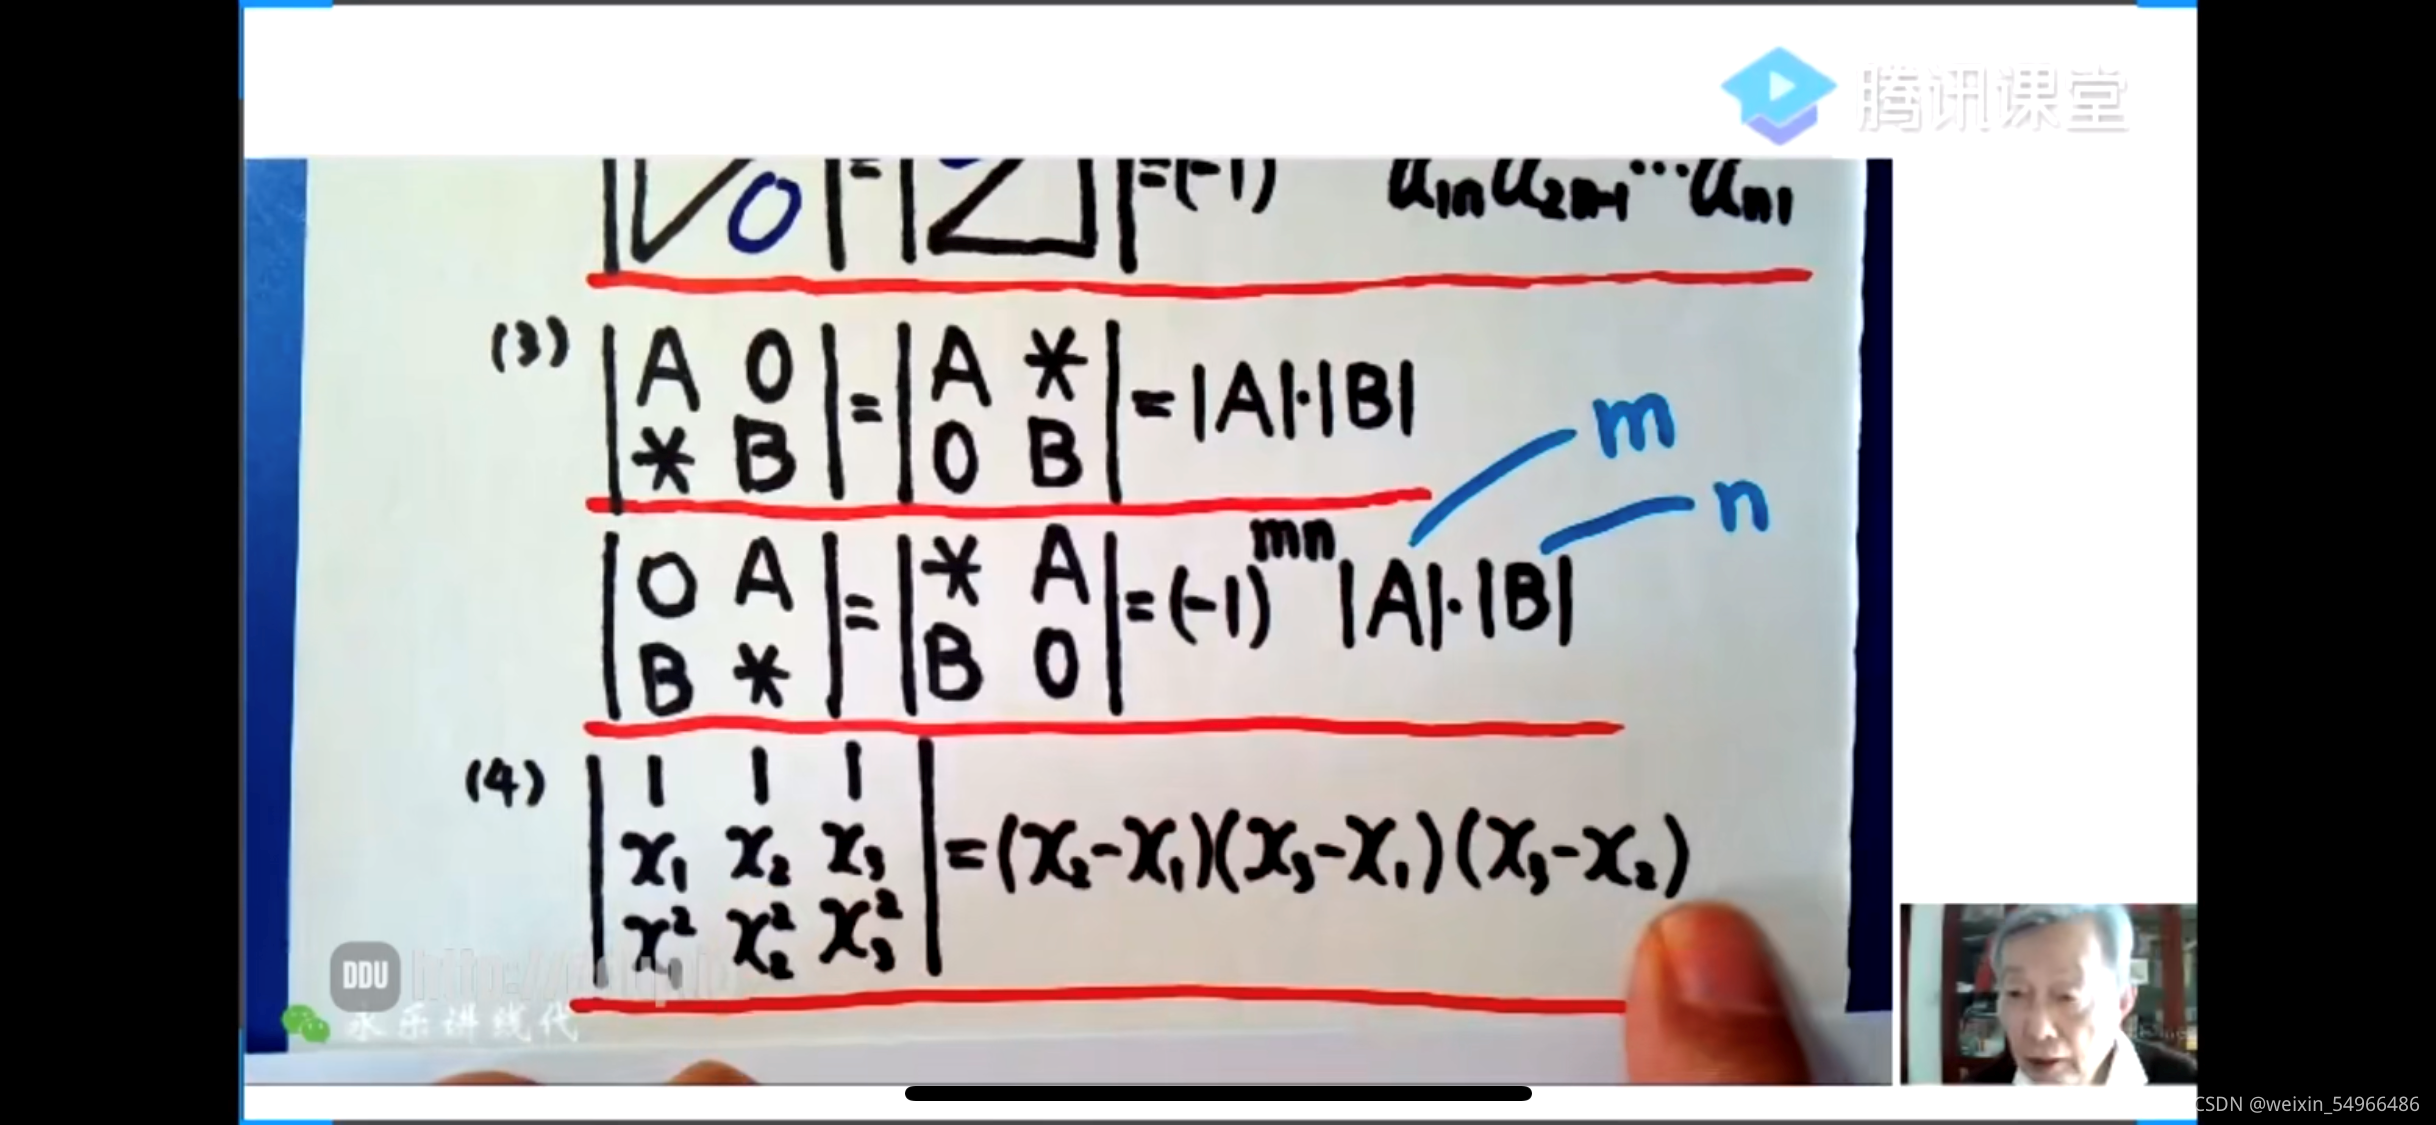 腾讯课堂
0 = = (-1) a₁ₙa₂ₙ₋₁…aₙ₁
(3) |A 0; * B| = |A *; 0 B| = |A|·|B|
m
n
|0 A; B *| = |* A; B 0| = (-1)^mn |A|·|B|
(4) |1 1 1; x₁ x₂ x₃; x₁² x₂² x₃²| = (x₂-x₁)(x₃-x₁)(x₃-x₂)
DDU
永乐讲线代
CSDN @weixin_54966486